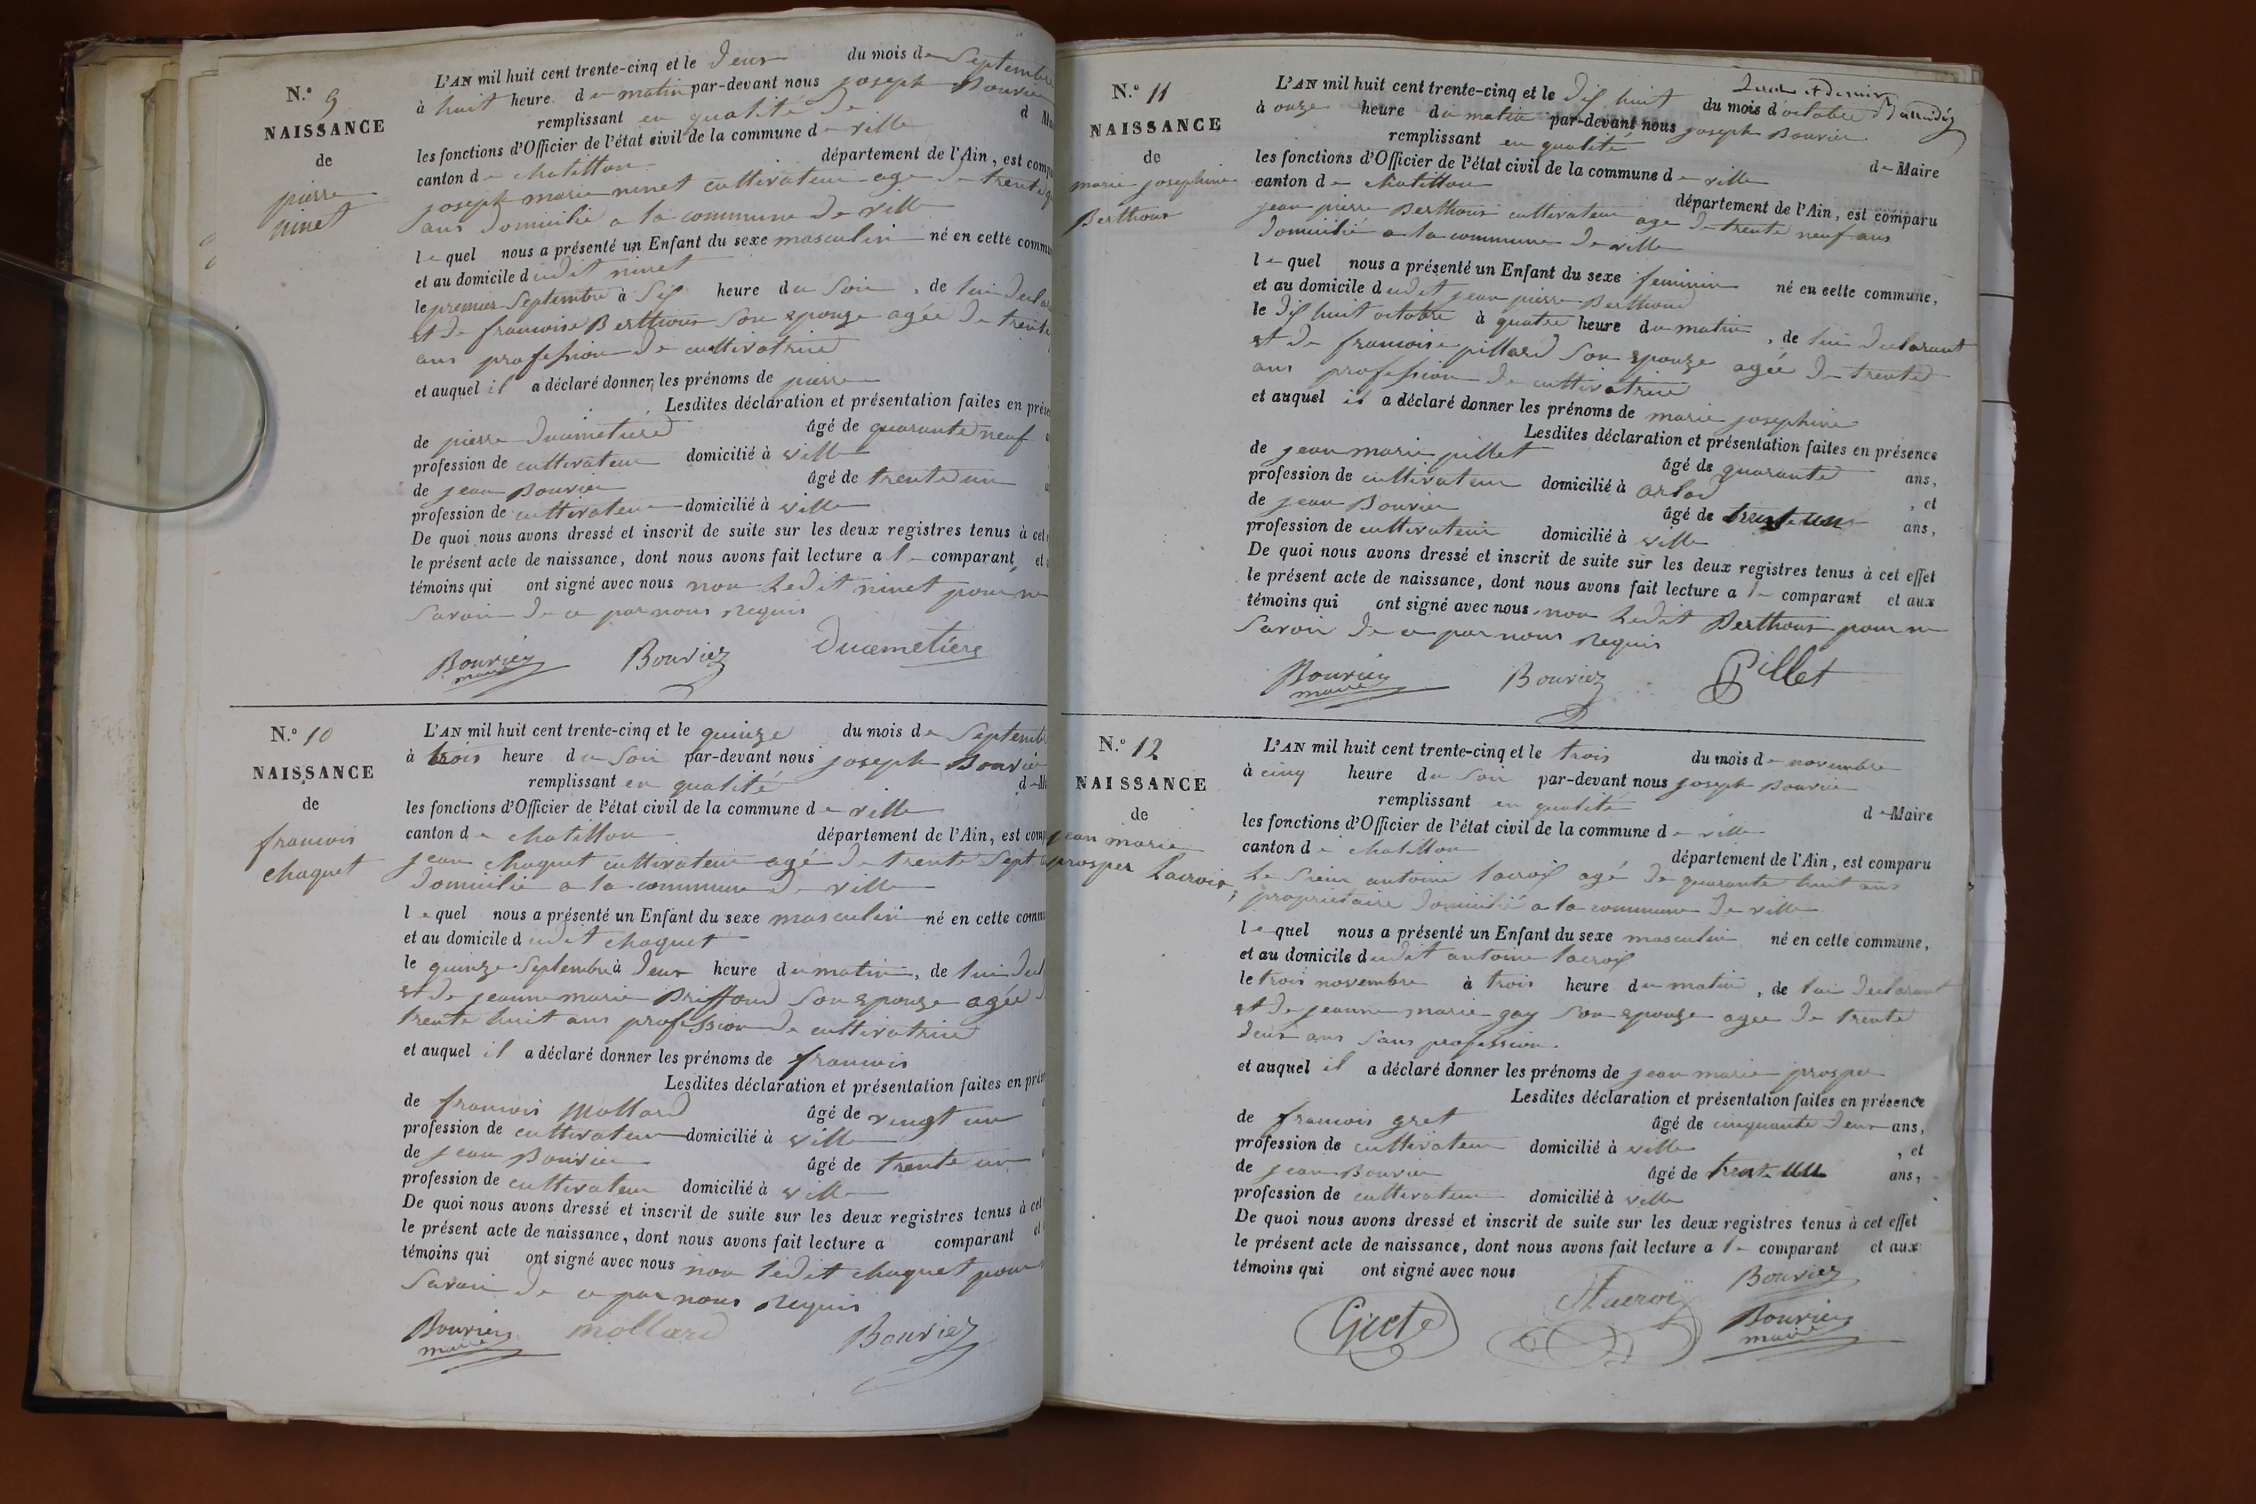 N.º 9
NAISSANCE
de
pierre
ninet
L'AN mil huit cent trente-cinq et le deux du mois de Septembre
à huit heure du matin par-devant nous joseph Bouvier
remplissant en qualité de d Ma
les fonctions d'Officier de l'état civil de la commune de ville
canton de chatillon département de l'Ain, est compa
joseph marie ninet cultivateur age de trente
ans domicilié a la commune de ville
lequel nous a présenté un Enfant du sexe masculin né en cette commu
et au domicile dudit ninet
le premier Septembre à Six heure du Soir, de lui declar
et de francoise Berthoux Son epouze agée de trente
ans profession de cultivatrice
et auquel il a déclaré donner les prénoms de pierre
Lesdites déclaration et présentation faites en prése
de pierre Ducimetiere âgé de quarante neuf
profession de cultivateur domicilié à ville
de jean Bouvier âgé de trente un
profession de cultivateur domicilié à ville
De quoi nous avons dressé et inscrit de suite sur les deux registres tenus à cet
le présent acte de naissance, dont nous avons fait lecture a le comparant, et
témoins qui ont signé avec nous non Ledit ninet pour ne
Savoir de ce par nous requis
Bouvier Bouvier Ducimetière
maire
N.º 10
NAISSANCE
de
francois
chaquet
L'AN mil huit cent trente-cinq et le quinze du mois de Septemb
à trois heure du Soir par-devant nous joseph Bouvier
remplissant en qualité de Ma
les fonctions d'Officier de l'état civil de la commune de ville
canton de chatillon département de l'Ain, est comp
jean chaquet cultivateur agé de trente Sept
domicilié a la commune de ville
lequel nous a présenté un Enfant du sexe masculin né en cette commu
et au domicile dudit chaquet
le quinze Septembre à deux heure du matin, de lui decl
et de jeanne marie Briffoud Son epouze agée
trente huit ans profession de cultivatrice
et auquel il a déclaré donner les prénoms de francois
Lesdites déclaration et présentation faites en prés
de francois Mollard âgé de vingt un
profession de cultivateur domicilié à ville
de jean Bouvier âgé de trente un
profession de cultivateur domicilié à ville
De quoi nous avons dressé et inscrit de suite sur les deux registres tenus à cet
le présent acte de naissance, dont nous avons fait lecture a comparant et
témoins qui ont signé avec nous non ledit chaquet pour
Savoir de ce par nous requis
Bouvier mollard Bouvier
maire
N.º 11
NAISSANCE
de
marie josephine
Berthoux
et dernier
L'AN mil huit cent trente-cinq et le dix huit du mois d'octobre
à onze heure du matin par-devant nous joseph Bouvier
remplissant en qualité de Maire
les fonctions d'Officier de l'état civil de la commune de ville
canton de chatillon département de l'Ain, est comparu
jean pierre Berthoux cultivateur age de trente neuf ans
domicilié a la commune de ville
lequel nous a présenté un Enfant du sexe feminin né en cette commune,
et au domicile dudit jean pierre Berthoux
le dix huit octobre à quatre heure du matin, de lui declarant
et de francoise pillard Son epouze agée de trente
ans profession de cultivatrice
et auquel il a déclaré donner les prénoms de marie josephine
Lesdites déclaration et présentation faites en présence
de jean marie pillet âgé de quarante ans,
profession de cultivateur domicilié à arlod, et
de jean Bouvier âgé de trente un ans,
profession de cultivateur domicilié à ville
De quoi nous avons dressé et inscrit de suite sur les deux registres tenus à cet effet
le présent acte de naissance, dont nous avons fait lecture a le comparant et aux
témoins qui ont signé avec nous, non Ledit Berthoux pour ne
Savoir de ce par nous requis
Bouvier Bouvier Pillet
maire
N.º 12
NAISSANCE
de
jean marie
prosper Lacroix
L'AN mil huit cent trente-cinq et le trois du mois de novembre
à cinq heure du Soir par-devant nous joseph Bouvier
remplissant en qualité de Maire
les fonctions d'Officier de l'état civil de la commune de ville
canton de chatillon département de l'Ain, est comparu
Le Sieur antoine lacroix agé de quarante huit ans
proprietaire domicilié a la commune de ville
lequel nous a présenté un Enfant du sexe masculin né en cette commune,
et au domicile dudit antoine lacroix
le trois novembre à trois heure du matin, de lui declarant
et de jeanne marie gay Son epouze agee de trente
deux ans Sans profession.
et auquel il a déclaré donner les prénoms de jean marie prosper
Lesdites déclaration et présentation faites en présence
de francois gret âgé de cinquante deux ans,
profession de cultivateur domicilié à ville, et
de jean Bouvier âgé de trente un ans,
profession de cultivateur domicilié à ville
De quoi nous avons dressé et inscrit de suite sur les deux registres tenus à cet effet
le présent acte de naissance, dont nous avons fait lecture a le comparant et aux
témoins qui ont signé avec nous Bouvier
Gret Lacroix Bouvier
maire